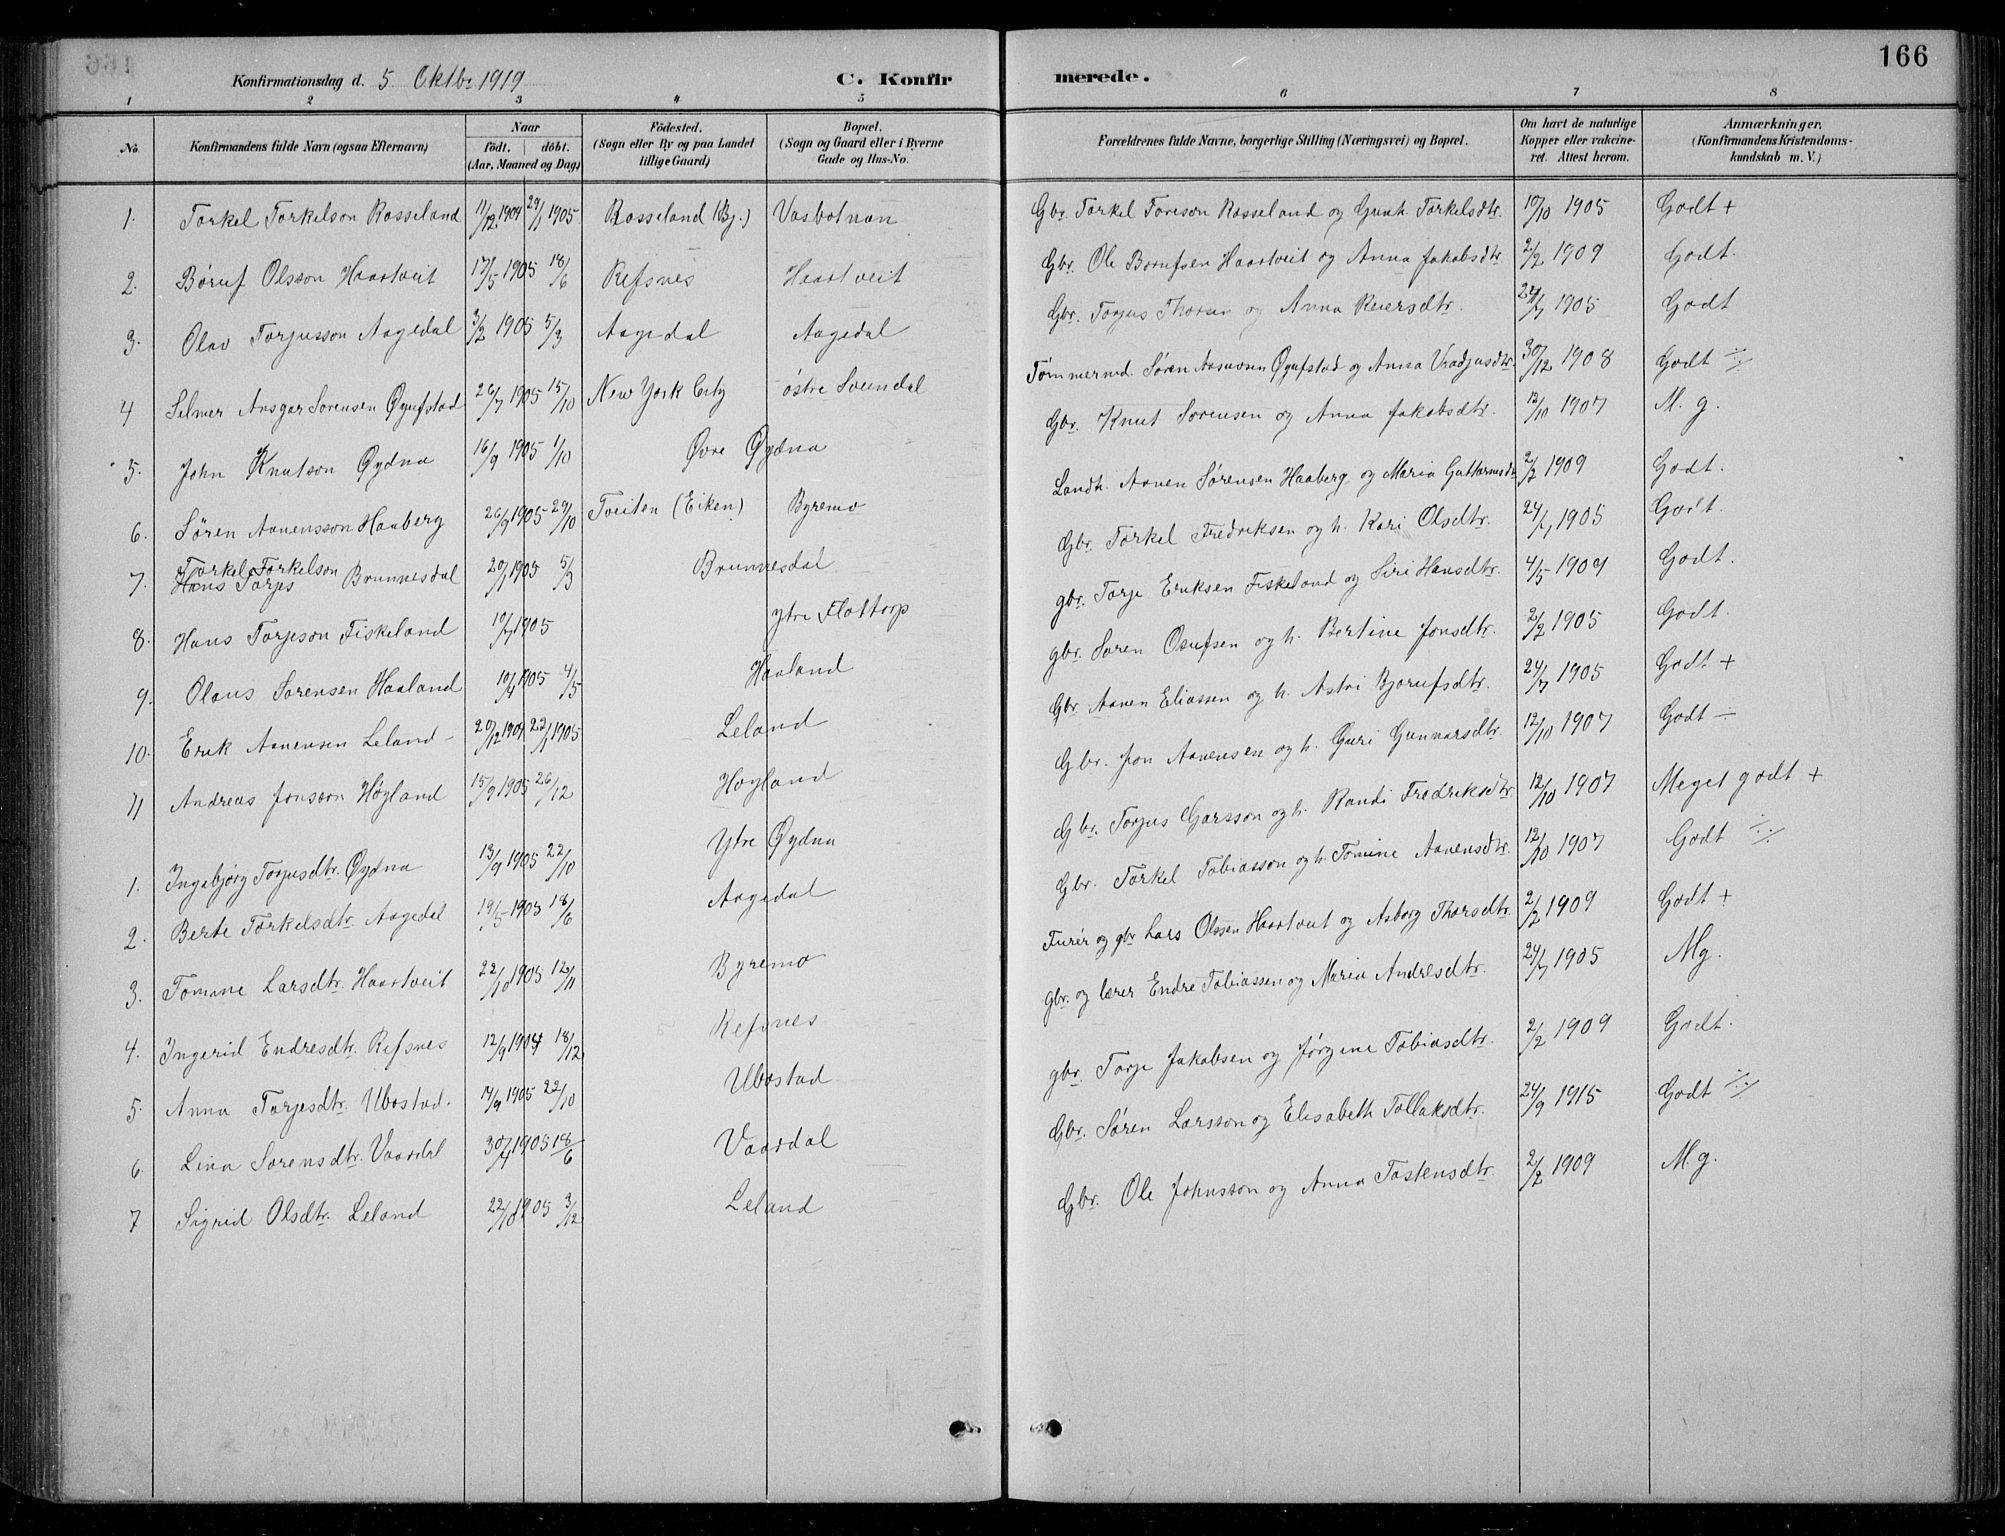 166
Konfirmationsdag d. 5. Oktbr 1919
C. Konfirmerede.
1 2 3 4 5 6 7 8
No. Konfirmandens fulde Navn (ogsaa Efternavn) Naar födt. döbt. (Aar, Maaned og Dag) Födested. (Sogn eller By og paa Landet tillige Gaard) Bopæl. (Sogn og Gaard eller i Byerne Gade og Hus-No. Forældrenes fulde Navne, borgerlige Stilling (Næringsvei) og Bopæl. Om havt de naturlige Kopper eller vakcineret. Attest herom. Anmærkninger. (Konfirmandens Kristendomskundskab m. V.)
1. Torkel Torkelson Rosseland 11/12 1904 29/1 1905 Rosseland (Bj.) Vasbotnan Gbr. Torkel Toreson Rosseland og Gunh. Torkelsdtr. 10/10 1905 Godt +
2. Børuf Olsson Haartveit 17/5 1905 18/6 Refsnes Haartveit Gbr. Ole Børufsen Haartveit og Anna Jakobsdtr 2/2 1909 Godt.
3. Olav Torjusson Aagedal 3/2 1905 5/3 Aagedal Aagedal Gbr. Torjus Thorsen og Anna Reiersdtr. 24/7 1905 Godt
4 Selmer Ansgar Sorensen Øyufstad 26/7 1905 15/10 New York City østre Sveindal Tømmermd. Søren Aasuvsen Øyufstad og Anna Vradjusdtr. 30/12 1908 Godt ÷
5. John Knutson Øydna 16/9 1905 1/10 Øvre Øydna Gbr. Knut Sorensen og Anna Jakobsdtr. 12/10 1907 M. g.
6. Søren Aanensson Haaberg 26/9 1905 29/10 Tveiten (Eiken) Byremo Landh. Aanen Sørensen Haaberg og Maria Guttormsdtr 2/2 1909 Godt.
7. Torkel Torkelson Brunnesdal 20/1 1905 5/3 Brunnesdal Gbr. Torkel Fredriksen og h. Kari Olsdtr. 24/7 1905 Godt.
8. Hans Torjeson Fiskeland 10/7 1905 ytre Flottorp gbr. Torje Eriksen Fiskeland og Siri Hansdtr. 4/5 1909 Godt.
9. Olaus Sørensen Haaland 10/4 1905 4/5 Haaland gbr. Soren Osufsen og h. Bertine Jonsdtr. 2/2 1905 Godt.
10. Erik Aanensen Leland 20/12 1904 22/1 1905 Leland Gbr Aanen Eliassen og h. Astri Bjorufsdtr. 24/7 1905 Godt +
11 Andreas Jonsson Høyland 15/9 1905 26/12 Høyland Gbr. Jon Aanensen og h. Guri Gunnarsdtr. 12/10 1907 Godt ÷
1. Ingebjørg Torjusdtr. Øydna 13/9 1905 22/10 Ytre Øydna Gbr. Torjus Garsson og h. Randi Fredriksdtr 12/10 1907 Meget godt +
2. Berte Torkelsdtr. Aagedal 19/5 1905 18/6 Aagedal Gbr. Torkel Tobiasson og h. Tomine Aanensdtr. 12/10 1907 Godt ÷
3. Tomine Larsdtr. Haartveit 22/10 1905 12/11 Byremo Furér og gbr Lars Olssen Haartveit og Asborg Thorsdtr. 2/2 1909 Godt +
4. Ingerid Endresdtr. Refsnes 12/9 1904 18/12 Refsnes gbr. og lærer Endre Tobiassen og Maria Andresdtr. 24/7 1905 Mg.
5. Anna Torjesdtr. Ubostad. 17/9 1905 22/10 Ubostad gbr. Torje Jakobsen og Jørgine Tobiasdtr. 2/2 1909 Godt.
6. Lina Sorensdtr. Vaardal 30/4 1905 18/6 Vaardal Gbr. Søren Larsson og Elisabeth Tollaksdtr. 24/9 1915 Godt ÷
7 Sigrid Olsdtr. Leland 22/10 1905 3/12 Leland Gbr. Ole Johnsson og Anna Tostensdtr. 2/2 1909 M.g.